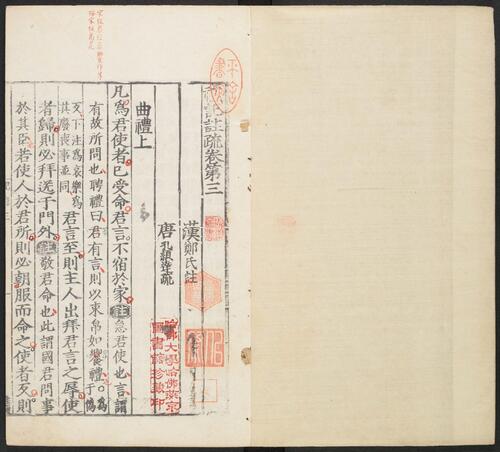 禮記註疏卷第三
漢鄭氏註
唐孔穎達疏
曲禮上
凡爲君使者已受命君言不宿於家註急君使也言謂
有故所問也聘禮曰君有言則以束帛如饗禮
歹下注爲哀樂爲其廢喪事並同君言至則主人出拜君言之辱使
者歸則必拜送于門外註敬君命也此謂國君問事
於其臣若使人於君所則必朝服而命之使者歹則
哈佛大學哈佛燕京圖書館珍藏印